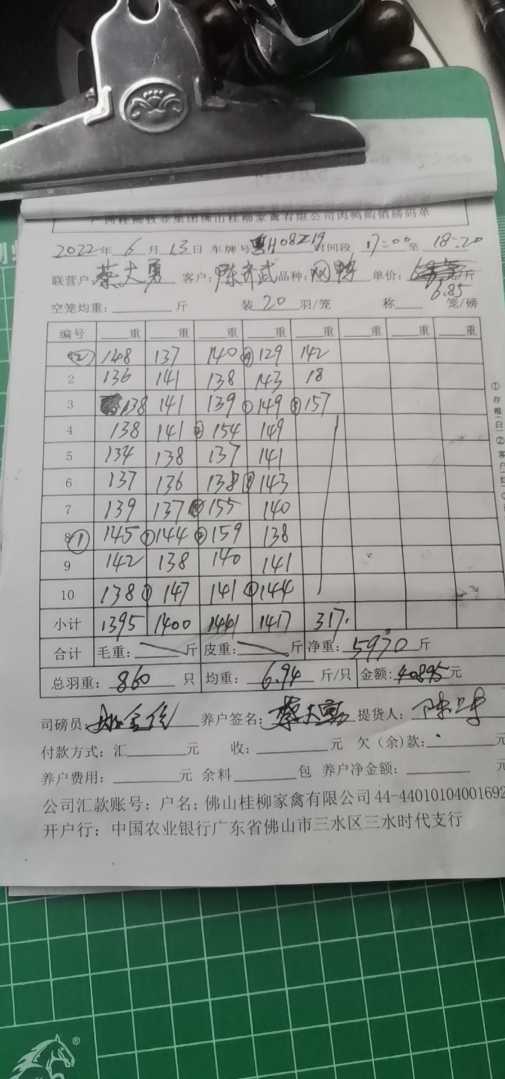 广西桂柳牧业集团佛山桂柳家禽有限公司肉鸭购销磅码单
2022年6月13日 车牌号 H08Z19 时间段 17:00至18:20
联营户:蔡大勇 客户:陈齐武 品种:肉鸭 单价: 斤
6.85
空笼均重: 斤 装20羽/笼 称 笼/磅
编号 重 重 重 重 重 重 重 重
② 148 137 140 ④129 142
2 136 141 138 143 18
3 138 141 139 ①149 ②157
4 138 141 ②154 149
5 134 138 137 141
6 137 136 138 ②143
7 139 137 155 140
8① 145 ①144 ③159 138
9 142 138 140 141
10 138 ①147 141 ①144
小计 1395 1400 1461 1417 317.
合计 毛重: 斤 皮重: 斤 净重:5970斤
总羽重:860只 均重:6.94斤/只 金额:40895元
司磅员: 养户签名:蔡大勇 提货人:
付款方式:汇 元 收: 元 欠(余)款:
养户费用: 元 余料 包 养户净金额: 元
公司汇款账号:户名:佛山桂柳家禽有限公司44-44010104001692
开户行:中国农业银行广东省佛山市三水区三水时代支行